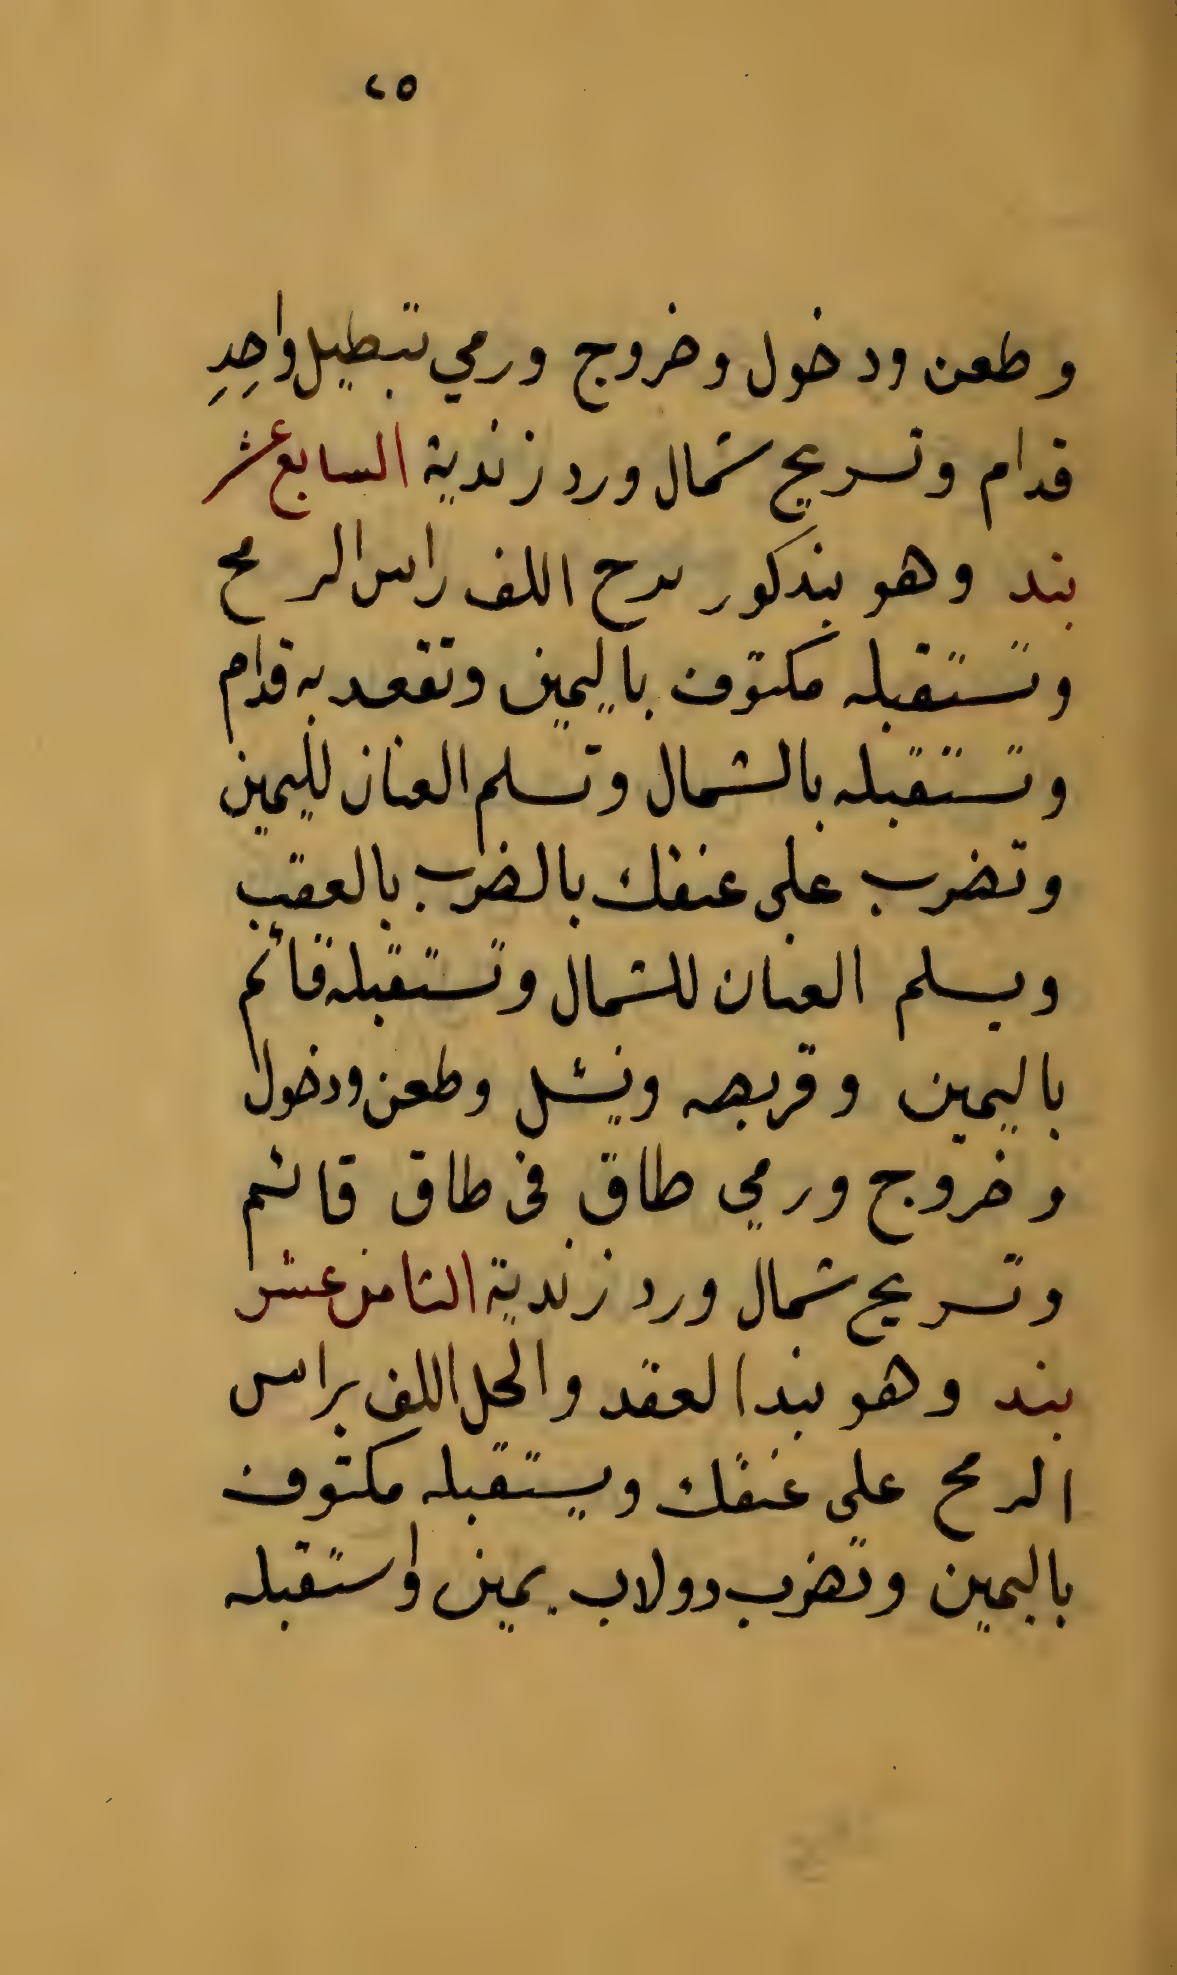 ٢٥
وطعن ودخول وخروج ورمي تبطيل واحدِ
قدام وتسريح شمال ورد زندية السابع عشر
بند وهو بند كور سرح اللف راس الرمح
وتستقبله مكتوف باليمين وتقعد به قدام
وتستقبله بالشمال وتسلم العنان لليمين
وتضرب على عنقك بالضرب بالعقب
ويسلم العنان للشمال وتستقبله قائم
باليمين وقربصه ونشل وطعن ودخول
وخروج ورمي طاق في طاق قائم
وتسريح شمال ورد زندية الثامن عشر
بند وهو بند العقد والحل اللف براس
الرمح على عنقك ويستقبله مكتوف
باليمين وتضرب دولاب يمين واستقبله